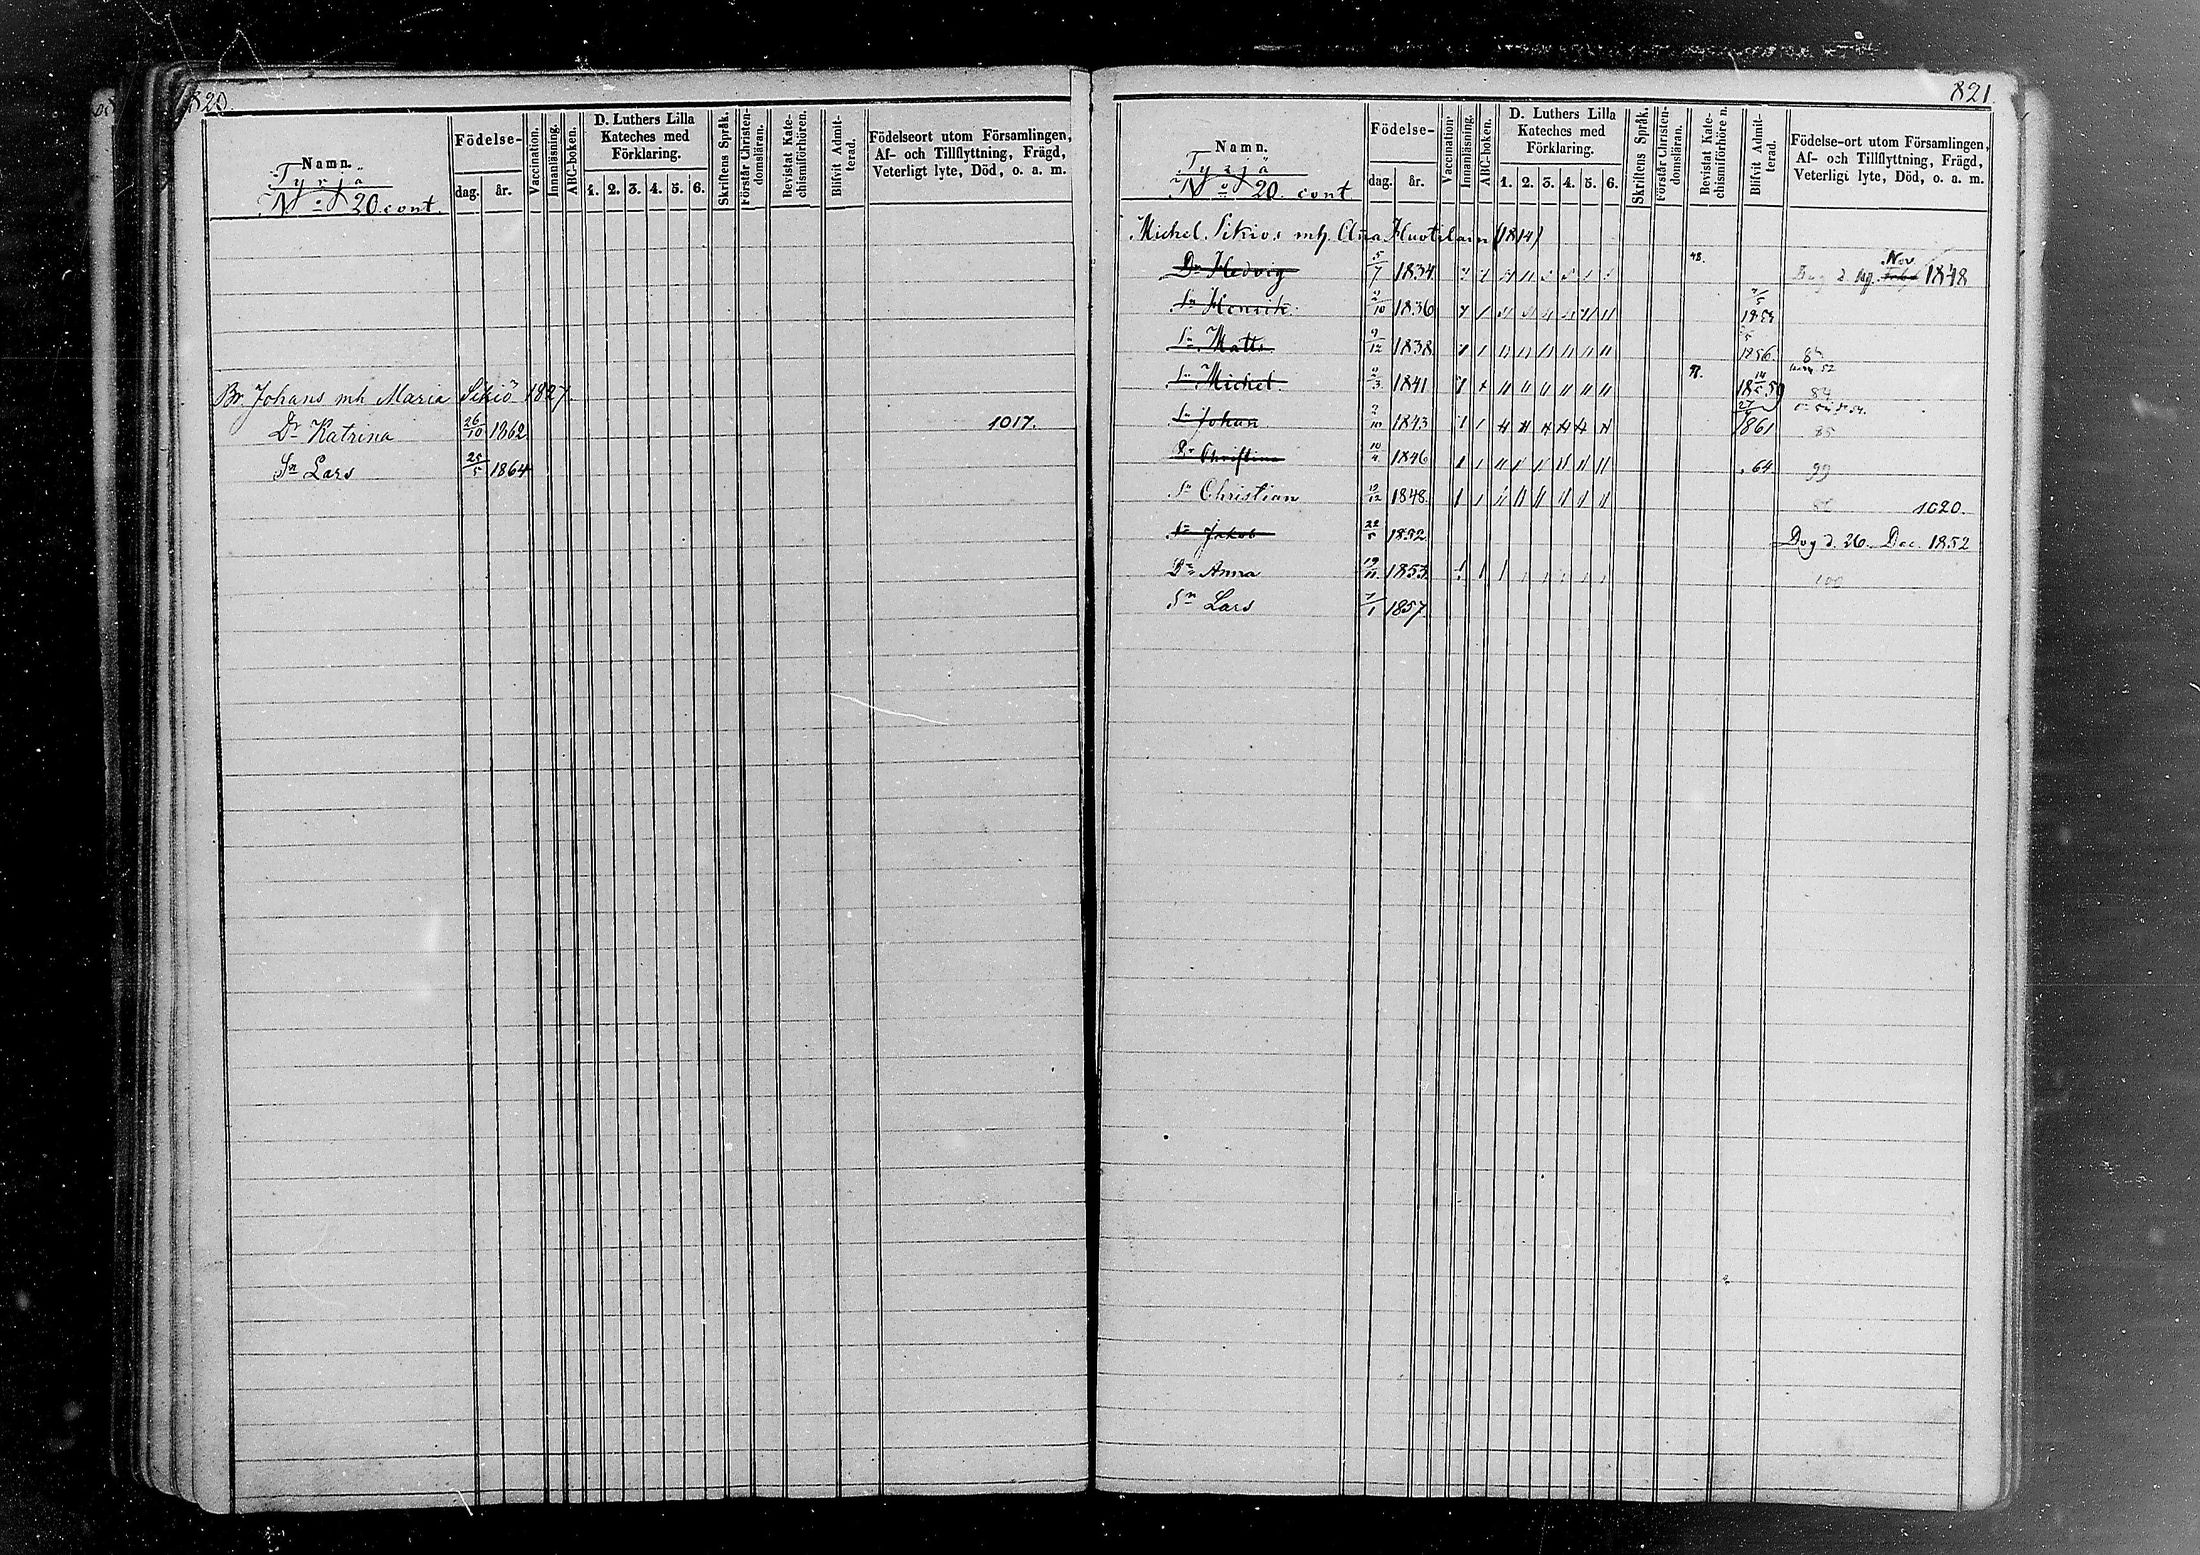 820
Namn.
Tyrjä
No 20 cont.
Födelse-
dag. år.
Vaccination.
Innanläsning.
ABC-boken.
D. Luthers Lilla
Kateches med
Förklaring.
1. 2. 3. 4. 5. 6.
Skriftens Språk.
Förstår Christen-
domsläran.
Bevistat Kate-
chismiförhören.
Blifvit Admit-
terad.
Födelseort utom Församlingen,
Af- och Tillflyttning, Frägd,
Veterligt lyte, Död, o. a. m.
Br Johans mh Maria Sikiö 1827
Dr Katrina 26/10 1862 1017.
Sn Lars 25/5 1864
821
Namn.
Tyrjä
No 20 cont
Födelse-
dag. år.
Vaccination
Innanläsning.
ABC-boken.
D. Luthers Lilla
Kateches med
Förklaring.
1. 2. 3. 4. 5. 6.
Skriftens Språk.
Förstår Christen-
domsläran.
Bevistat Kate-
chismiförhören.
Blifvit Admit-
terad.
Födelse-ort utom Församlingen,
Af- och Tillflyttning, Frägd,
Veterligt lyte, Död, o. a. m.
Michel Sikiös mh. Anna Huotilain (1814)
Dr Hedvig 5/7 1834 48. Nov 1848
Sn Henrik 2/10 1836
Sn Matts 9/12 1838 1856
Sn Michel 2/3 1841 14/5 1859 84
Sn Johan 2/10 1843 1861 85
Dr Christina 10/4 1846 64 99
Sn Christian 13/12 1848 1020.
Sn Jakob 22/5 1852 Dog d. 26 Dec. 1852
Dr Anna 19/11 1853 100
Sn Lars 7/1 1857